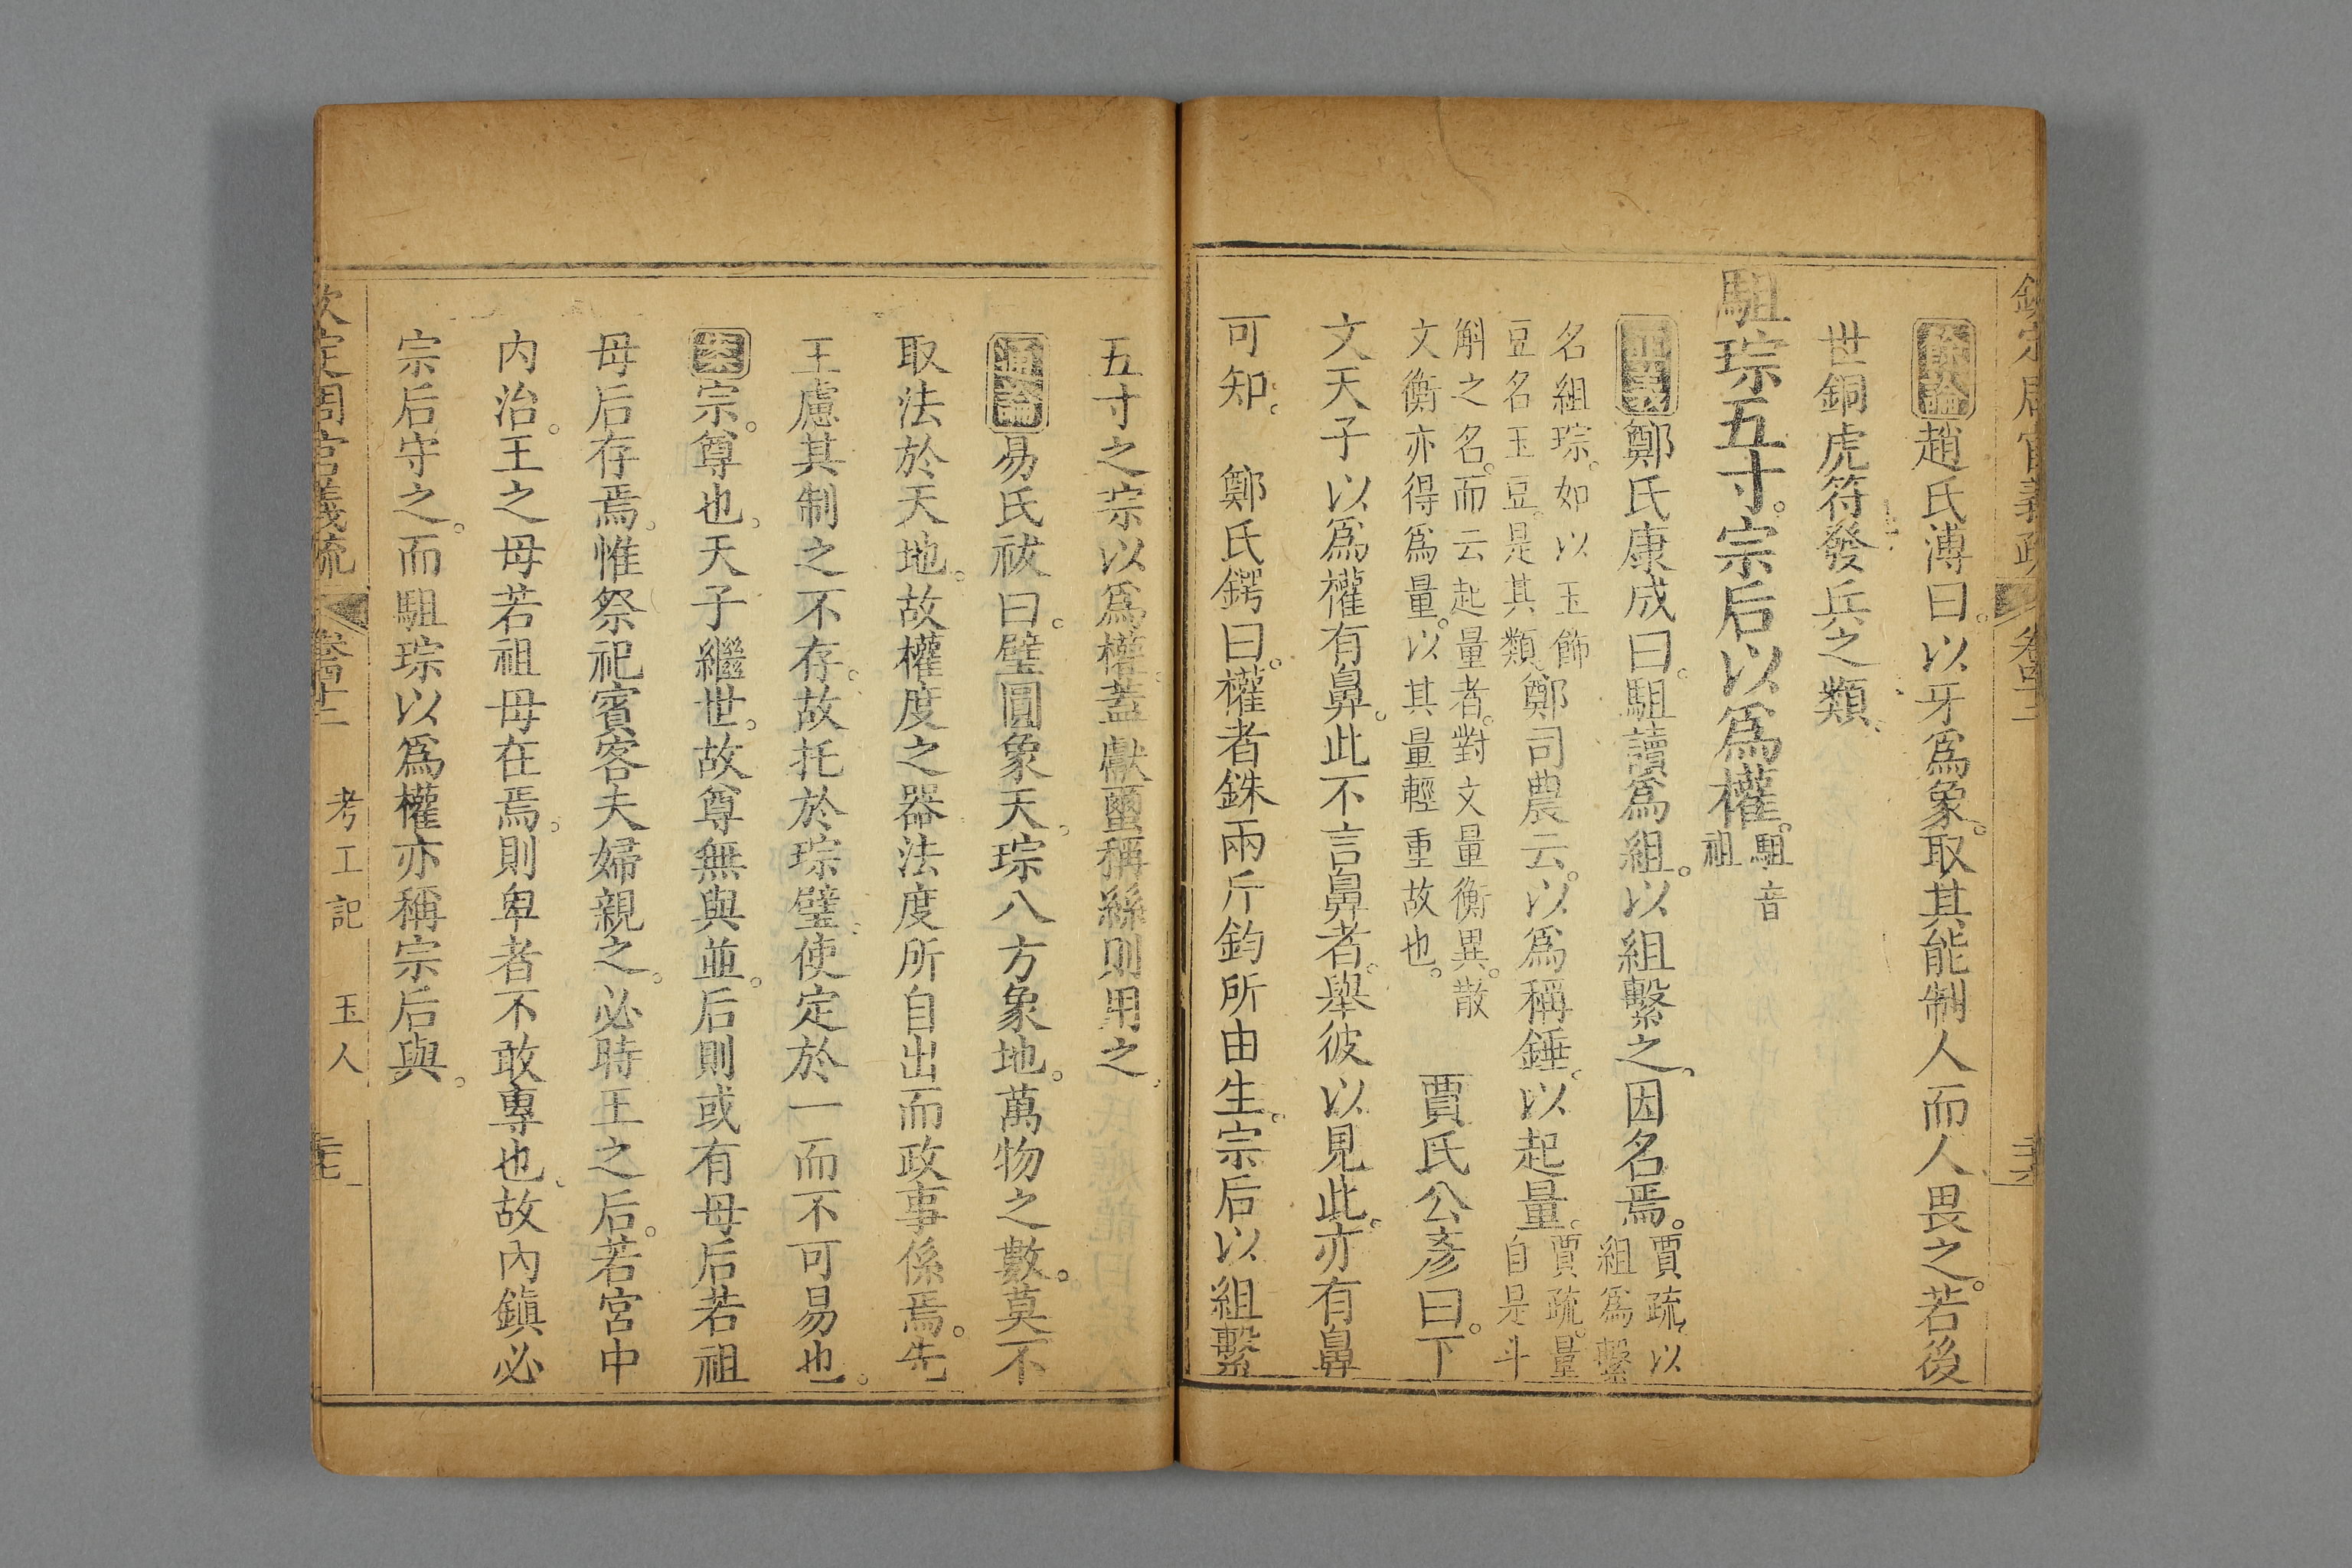 欽定周官義疏 卷四十二
餘論趙氏溥曰。以牙爲象。取其能制人而人畏之。若後
世銅虎符發兵之類。
駔琮五寸。宗后以爲權。駔音
祖
正義鄭氏康成曰。駔讀爲組。以組繫之。因名焉。賈疏。以
組爲繫
名組琮。如以玉飾
豆名玉豆。是其類
鄭司農云。以爲稱錘。以起量。賈疏。量
自是斗
斛之名。而云起量者。對文量衡異。散
文衡亦得爲量。以其量輕重故也。
賈氏公彥曰。下
文天子以爲權有鼻。此不言鼻者。舉彼以見此。亦有鼻
可知。 鄭氏鍔曰。權者銖兩斤鈞所由生。宗后以組繫
五寸之琮以爲權。蓋獻繭稱絲則用之。
通論易氏祓曰。璧圓象天。琮八方象地。萬物之數。莫不
取法於天地。故權度之器法度所自出而政事係焉。先
王慮其制之不存。故托於琮璧。使定於一而不可易也。
案宗。尊也。天子繼世。故尊無與並。后則或有母后若祖
母后存焉。惟祭祀賓客夫婦親之。必時王之后。若宮中
内治。王之母若祖母在焉。則卑者不敢專也。故內鎭必
宗后守之。而駔琮以爲權亦稱宗后與。
欽定周官義疏 卷四十二 考工記 玉人 三七